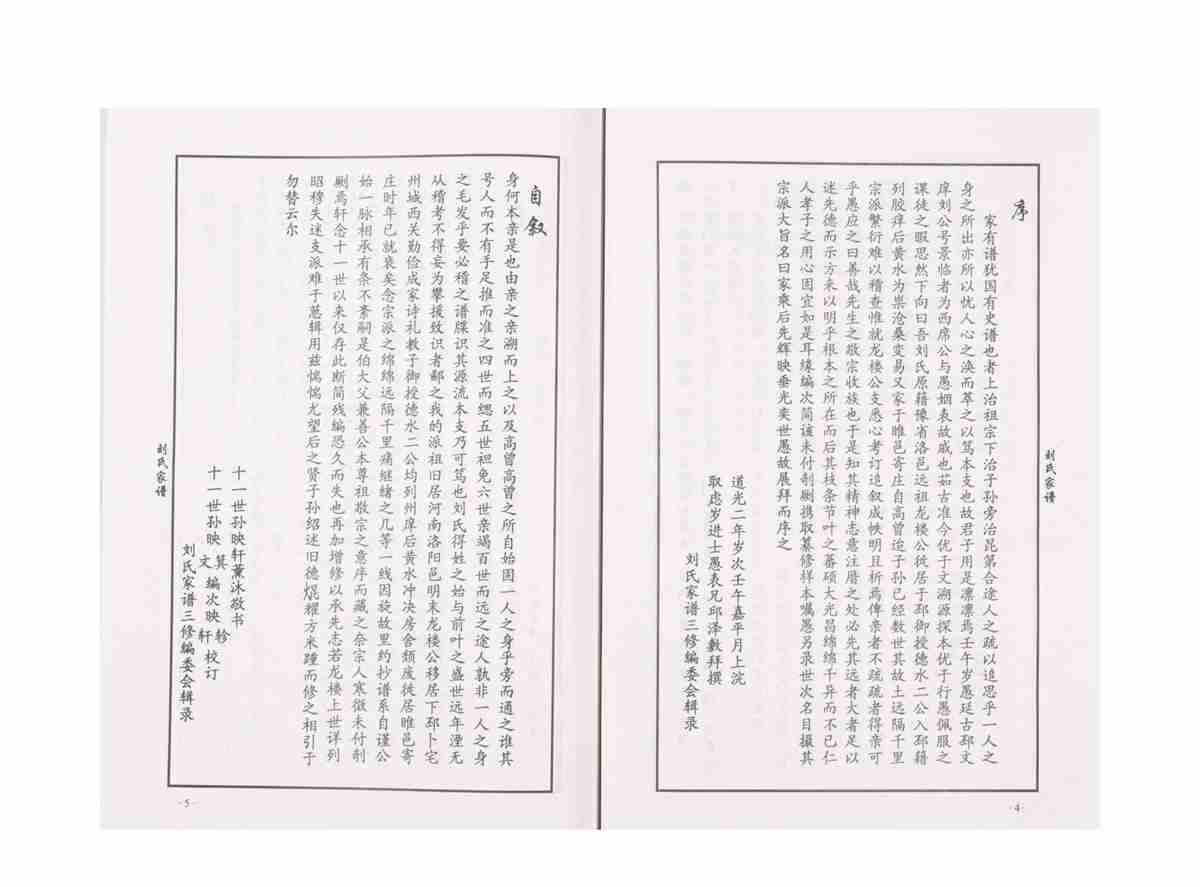 序
家有谱犹国有史谱也者上治祖宗下治子孙旁治昆弟合途人之疏以追思乎一人之
身之所出亦所以忧人心之涣而萃之以笃本支也故君子用是凛凛焉壬午岁愚延古邳文
庠刘公号景临者为西席公与愚姻表故戚也茹古准今优于文溯源探本优于行愚佩服之
课徒之暇思然下向曰吾刘氏原籍豫省洛邑远祖龙楼公徙居于邳御授德水二公入邳籍
列胶庠后黄水为祟沧桑变易又家于睢邑寄庄自高曾迨子孙已经数世其故土远隔千里
宗派繁衍难以稽查惟就龙楼公支悉心考订追叙成帙明且析焉俾亲者不疏疏者得亲可
乎愚应之曰善哉先生之敬宗收族也于是知其精神志意注厝之处必先其远者大者足以
述先德而示方来以明乎根本之所在而后其枝条节叶之蕃硕大光昌绵绵千异而不已仁
人孝子之用心固宜如是耳缘编次简该未付制劂携取纂修样本嘱愚另录世次名目撮其
宗派大旨名曰家乘后先辉映垂光奕世愚故展拜而序之
道光二年岁次壬午嘉平月上浣
取虑岁进士愚表兄邱泽敷拜撰
刘氏家谱三修编委会辑录
刘氏家谱
·4·
自叙
身何本亲是也由亲之亲溯而上之以及高曾高曾之所自始固一人之身乎旁而通之谁其
号人而不有手足推而准之四世而缌五世袒免六世亲竭百世而远之途人孰非一人之身
之毛发乎要必稽之谱牒识其源流本支乃可笃也刘氏得姓之始与前叶之盛世远年湮无
从稽考不得妄为攀援致识者鄙之我的派祖旧居河南洛阳邑明末龙楼公移居下邳卜宅
州城西关勤俭成家诗礼教子御授德水二公均列州庠后黄水冲决房舍颓废徙居睢邑寄
庄时年已就衰矣念宗派之绵绵远隔千里痛继绪之几等一线因旋故里约抄谱系自谨公
始一脉相承有条不紊嗣是伯大父兼善公本尊祖敬宗之意序而藏之奈宗人寒微未付制
劂焉轩念十一世以来仅存此断简残编恐久而失也再加增修以承先志若龙楼上世详列
昭穆失迷支派难于葸辑用兹惴惴尤望后之贤子孙绍述旧德焜耀方来踵而修之相引于
勿替云尔
十一世孙映轩薰沐敬书
十一世孙映文 箕编次映轩 轸校订
刘氏家谱三修编委会辑录
刘氏家谱
·5·